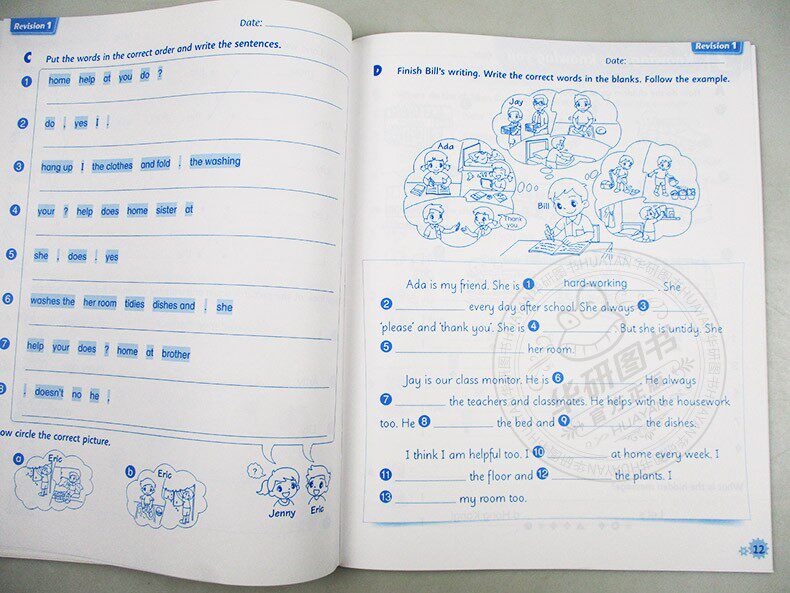 Revision 1
Date:
C Put the words in the correct order and write the sentences.
1 home help at you do ?
2 do , yes I .
3 hang up I the clothes and fold . the washing
4 your ? help does home sister at
5 she , does . yes
6 washes the her room tidies dishes and . she
7 help your does ? home at brother
8 , doesn't no he .
ow circle the correct picture.
a Eric
b Eric
?
Jenny
Eric
Revision 1
Date:
D Finish Bill's writing. Write the correct words in the blanks. Follow the example.
Jay
Ada
Bill
Thank you.
Ada is my friend. She is 1 hard-working . She
2 every day after school. She always 3
'please' and 'thank you'. She is 4 . But she is untidy. She
5 her room.
Jay is our class monitor. He is 6 . He always
7 the teachers and classmates. He helps with the housework
too. He 8 the bed and 9 the dishes.
I think I am helpful too. I 10 at home every week. I
11 the floor and 12 the plants. I
13 my room too.
12
华研图书
HUAYAN